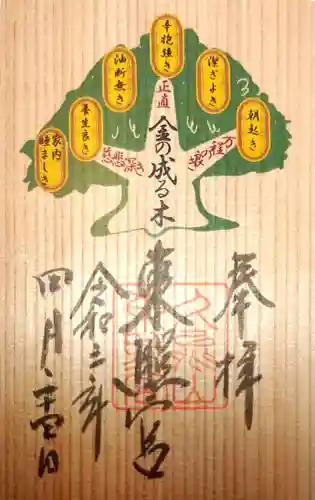 朝起き
潔ぎよき
辛抱強き
油断無き
養生良き
家内睦ましき
万程の良き
正直
慈悲深き
金の成る木
奉拝
東照宮
令和三年
四月二十四日